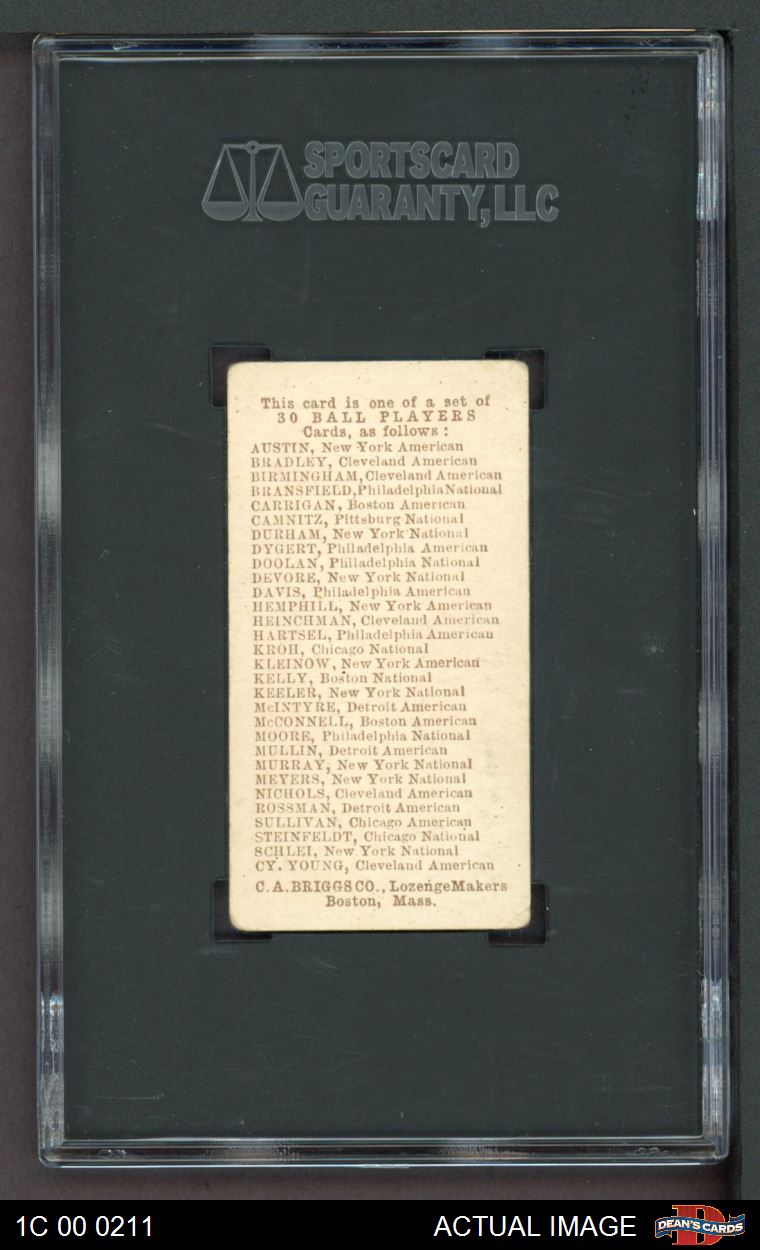 SPORTSCARD
GUARANTY, LLC
This card is one of a set of
30 BALL PLAYERS
Cards, as follows :
AUSTIN, New York American
BRADLEY, Cleveland American
BIRMINGHAM, Cleveland American
BRANSFIELD, Philadelphia National
CARRIGAN, Boston American
CAMNITZ, Pittsburg National
DURHAM, New York National
DYGERT, Philadelphia American
DOOLAN, Philadelphia National
DEVORE, New York National
DAVIS, Philadelphia American
HEMPHILL, New York American
HEINCHMAN, Cleveland American
HARTSEL, Philadelphia American
KROH, Chicago National
KLEINOW, New York American
KELLY, Boston National
KEELER, New York National
McINTYRE, Detroit American
McCONNELL, Boston American
MOORE, Philadelphia National
MULLIN, Detroit American
MURRAY, New York National
MEYERS, New York National
NICHOLS, Cleveland American
ROSSMAN, Detroit American
SULLIVAN, Chicago American
STEINFELDT, Chicago National
SCHLEI, New York National
CY. YOUNG, Cleveland American
C. A. BRIGGS CO., Lozenge Makers
Boston, Mass.
1C 00 0211
ACTUAL IMAGE
DEAN'S CARDS